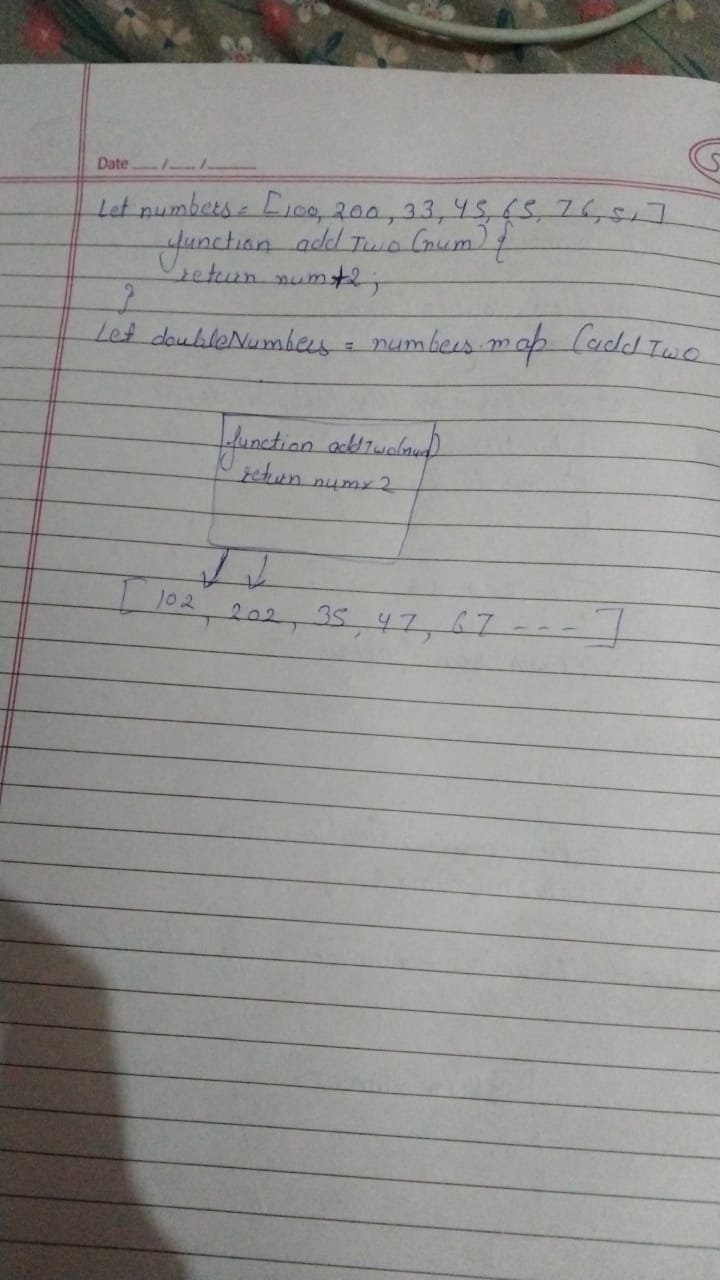 Date __/__/____
Let numbers = [100, 200, 33, 45, 65, 76, 5, ]
function add Two (num) {
return num+2;
}
Let doubleNumbers = numbers.map (add Two
function addTwo(num)
return num×2
[ 102, 202, 35, 47, 67 --- ]